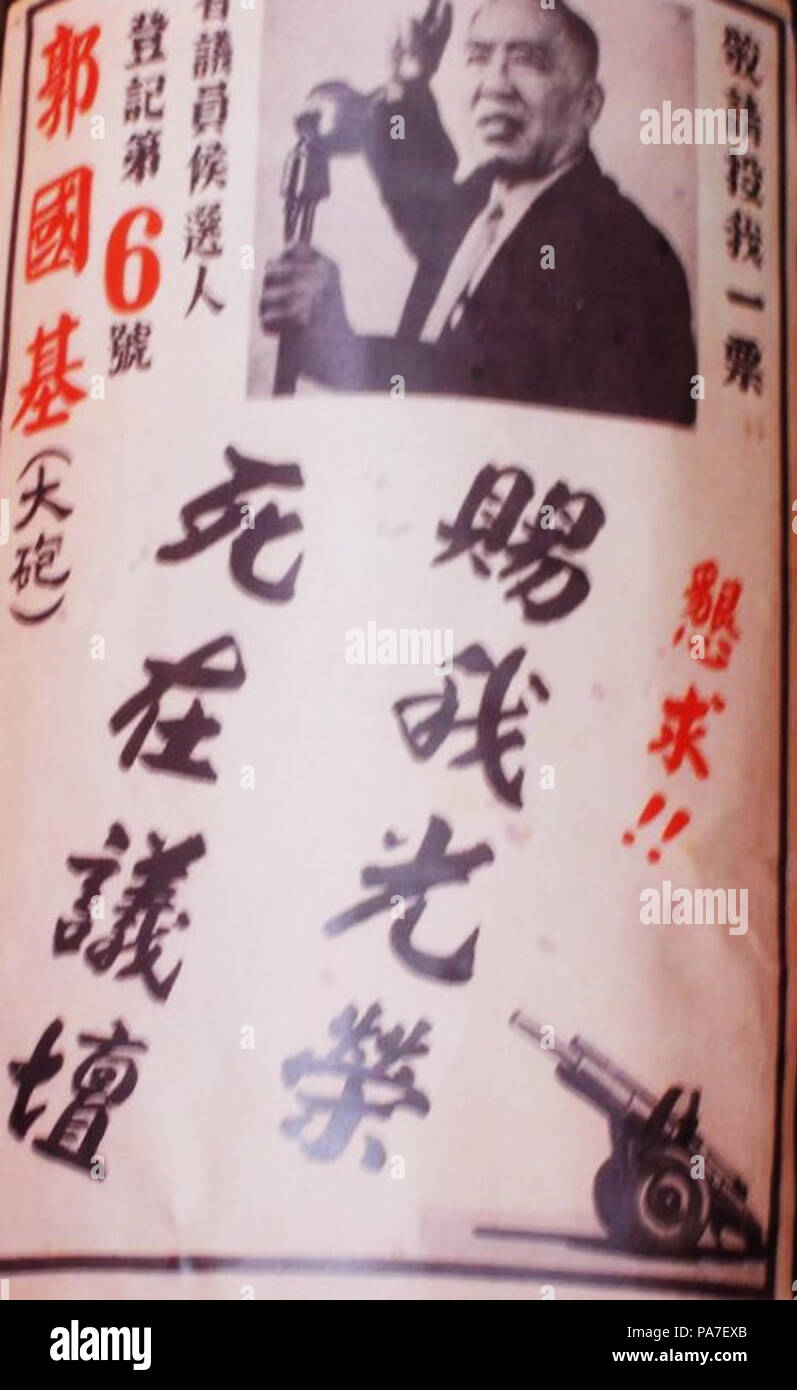 敬請投我一票
懇求!!
賜我光榮
死在議壇
省議員候選人
登記第6號
郭國基(大砲)
alamy
alamy stock photo
PA7EXB
www.alamy.com